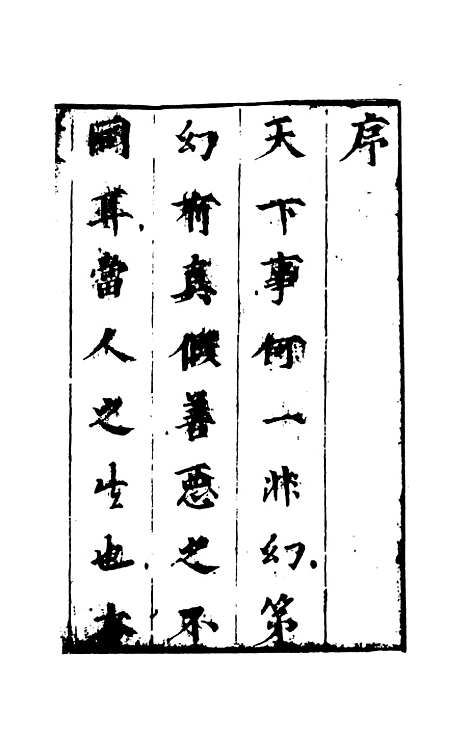 序
天下事何一非幻.第
幻術真假善惡之不
同耳.當人之生也.